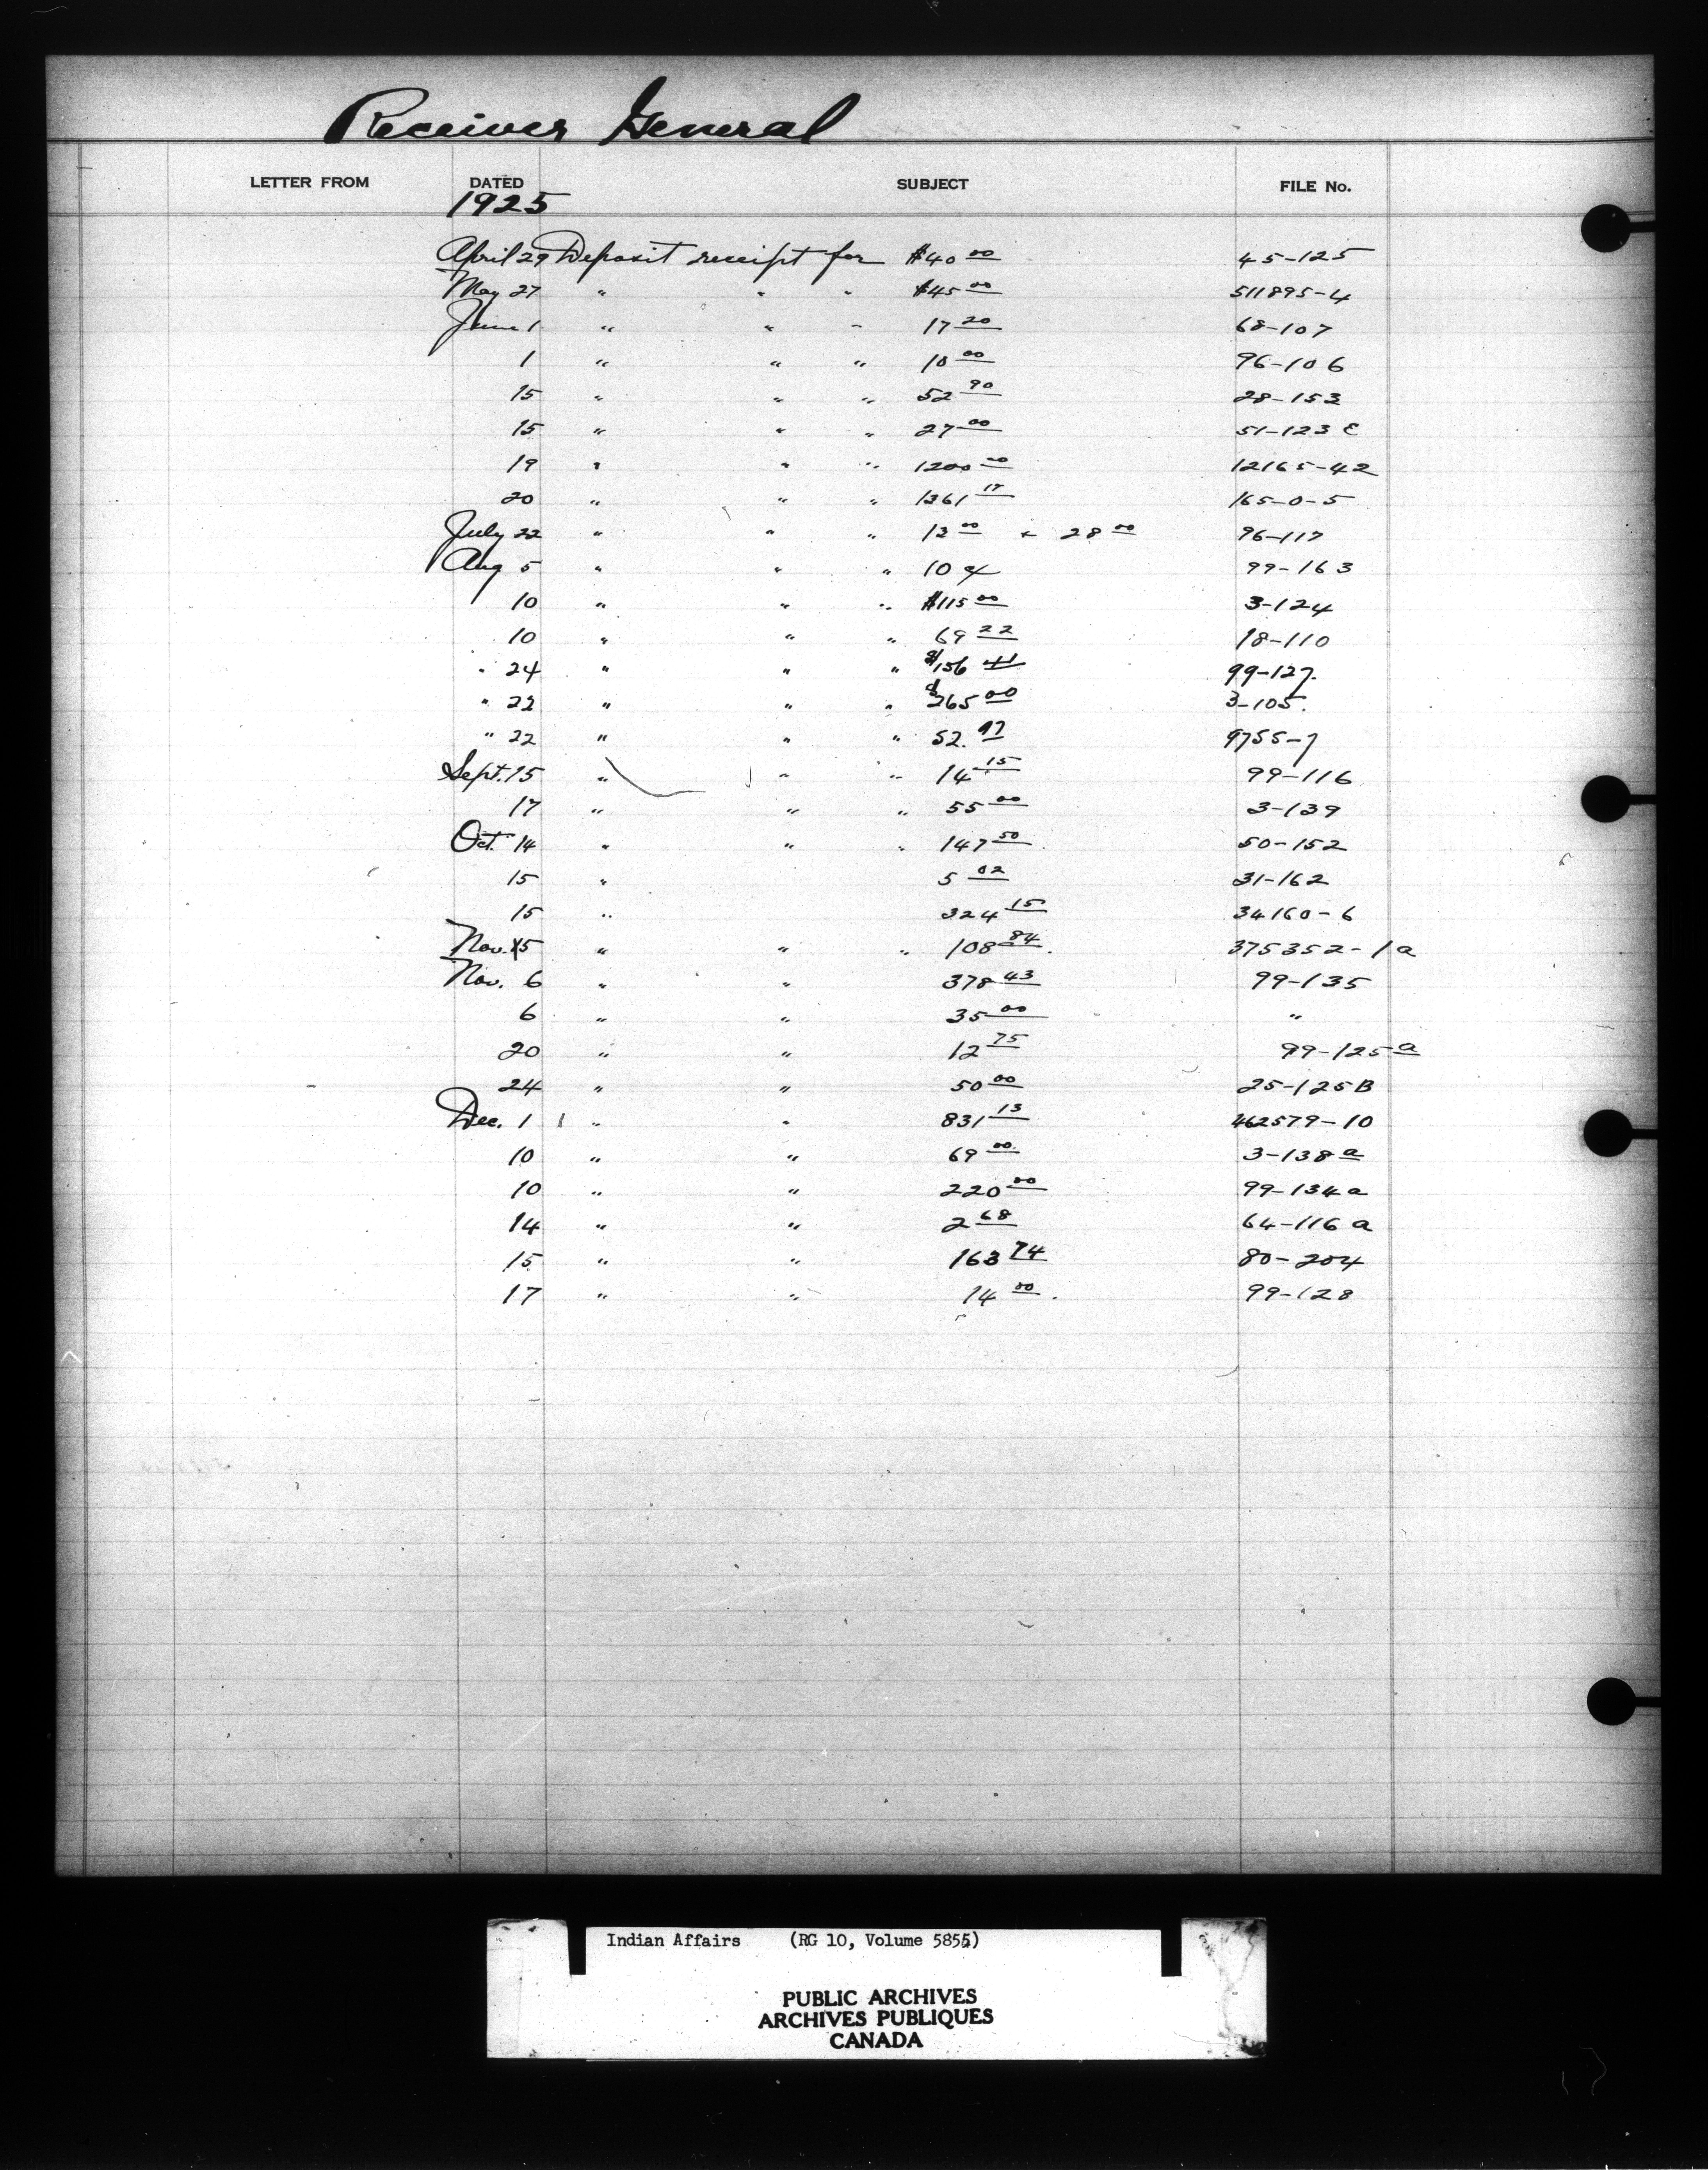 Receiver General
LETTER FROM DATED SUBJECT FILE No.
1925
April 29 Deposit receipt for $40 00 45-125
May 27 " " " $45 00 511895-4
June 1 " " " 17 20 68-107
1 " " " 10 00 96-106
15 " " " 52 90 28-153
15 " " " 27 00 51-123 E
19 " " " 1200 00 12165-42
20 " " " 1361 17 165-0-5
July 22 " " " 13 00 + 28 00 96-117
Aug 5 " " " 10 99-163
10 " " " $115 00 3-124
10 " " " 69 22 18-110
" 24 " " " $156 41 99-127.
" 22 " " " $265 00 3-105.
" 22 " " " 52. 97 9755-7
Sept. 15 " " " 14 15 99-116
17 " " " 55 00 3-139
Oct. 14 " " " 147 50 50-152
15 " 5 02 31-162
15 " 324 15 34160-6
Nov. 5 " " " 108 84. 375352-1a
Nov. 6 " " 378 43 99-135
6 " " 35 00 "
20 " " 12 75 99-125a
24 " " 50 00 25-125B
Dec. 1 " " 831 13 462579-10
10 " " 69 00 3-138a
10 " " 220 00 99-134a
14 " " 2 68 64-116 a
15 " " 163 74 80-204
17 " " 14 00. 99-128
Indian Affairs (RG 10, Volume 5855)
PUBLIC ARCHIVES
ARCHIVES PUBLIQUES
CANADA